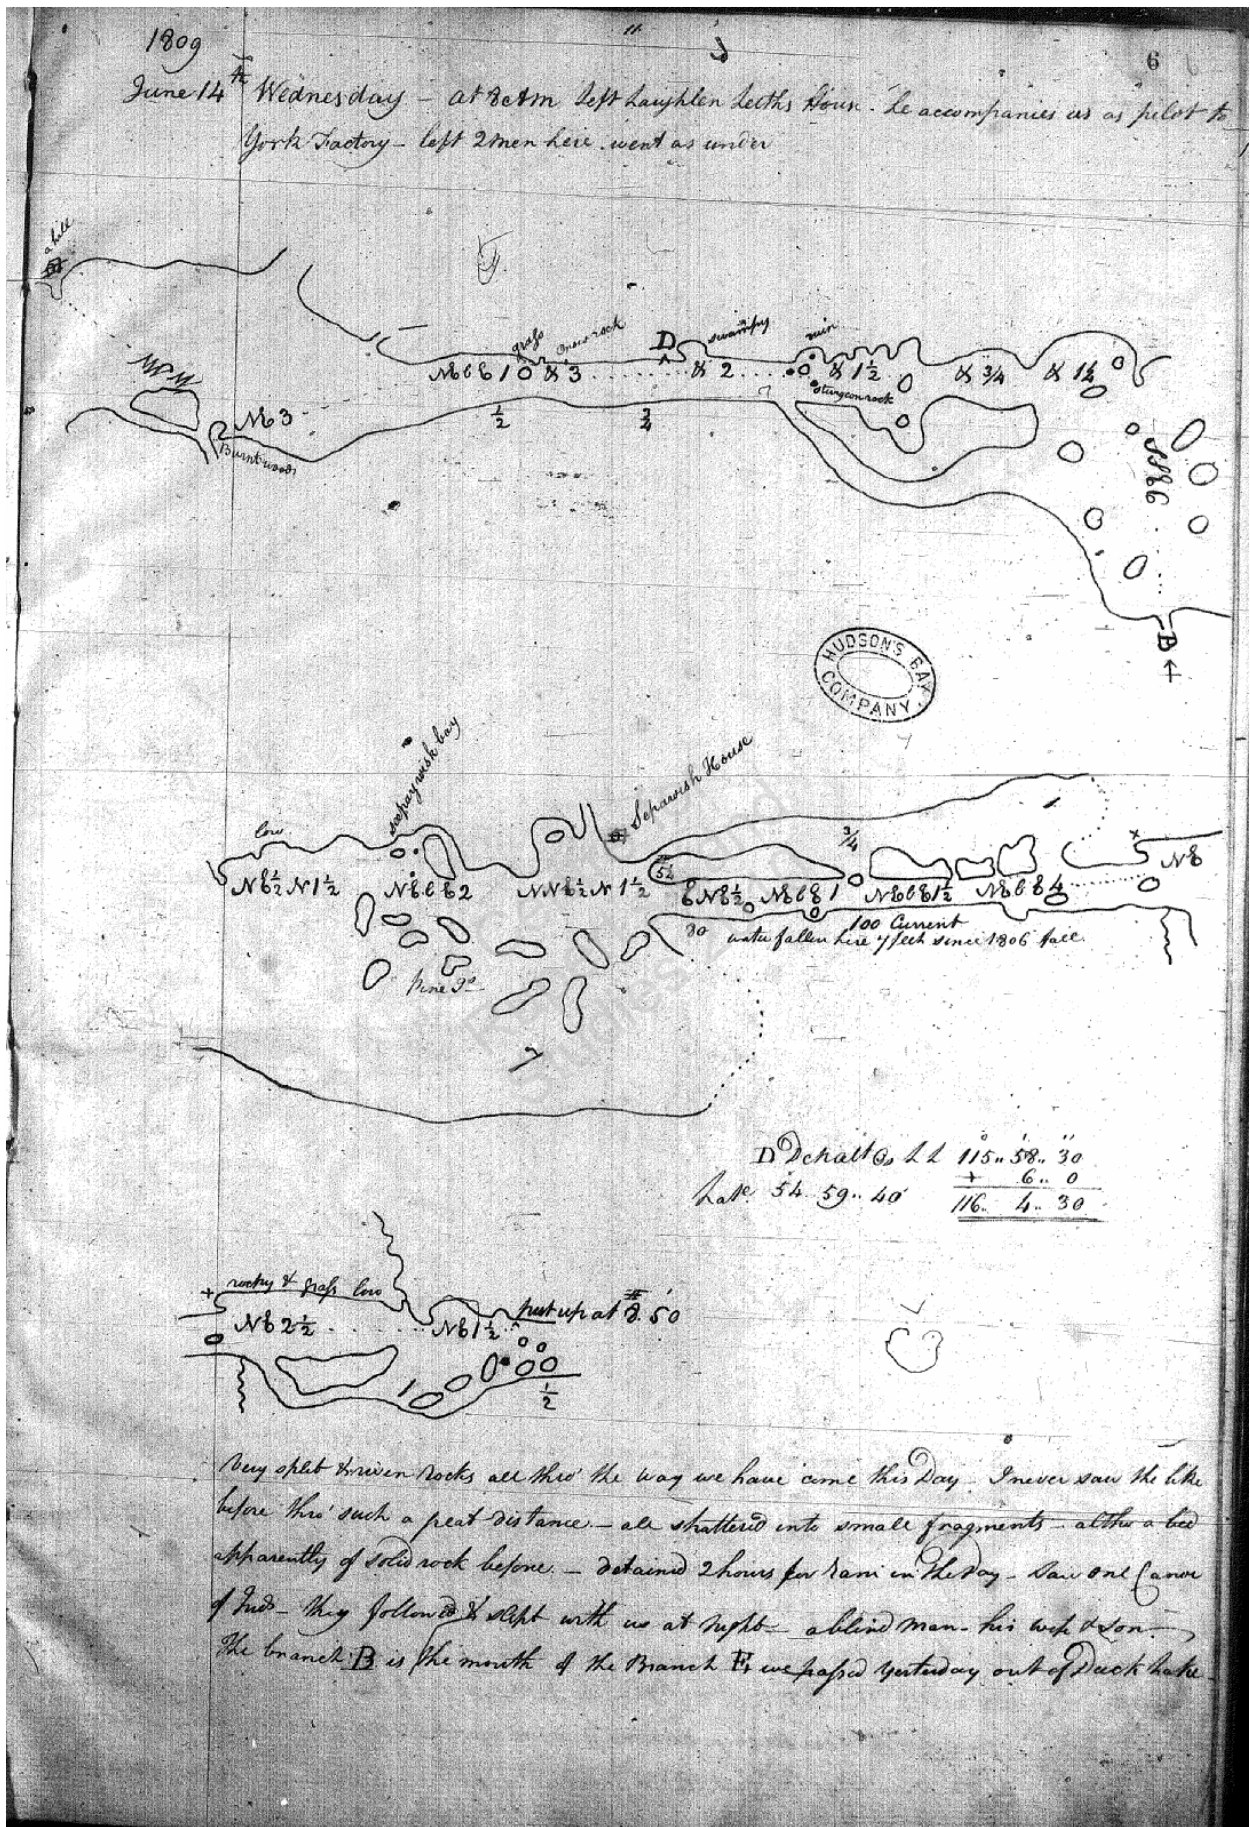 1809
6
June 14th Wednesday – at 8 AM left Laughlen Leiths House. he accompanies us as pilot to
York Factory – left 2 men here. went as under
a hill
grass
rock
D
swampy
ruin
NEbE 1 & 3 & 2 & 1½ & ¾ & 1¼
sturgeon rock
NE 3
½
¾
Burnt woods
SSE 6
B
HUDSON'S BAY
COMPANY
seepaywisk bay
Sepawish House
low
¾
NE½N 1½ NEbE 2 NNE½N 1½ ENE½ NEbE 1 NEbE 1½ NEbE 4 NE
54
80
100 Current
water fallen here 7 feet since 1806 fall.
Pine Is
D 115.. 58.. 30
+ 6.. 0
Late 54.. 59.. 40 116.. 4.. 30
rocky & grass low
NE 2½ NE 1½ put up at 8.50
1
½
Very split & riven rocks all thro' the way we have come this Day. I never saw the like
before thro' such a great distance – all shattered into small fragments – altho a bed
apparently of solid rock before. – detained 2 hours for rain in the Day – Saw one Canoe
of Inds – they followed & slept with us at night – a blind man – his wife & son –
The branch B is the mouth of the Branch E, we passed yesterday out of Duck Lake